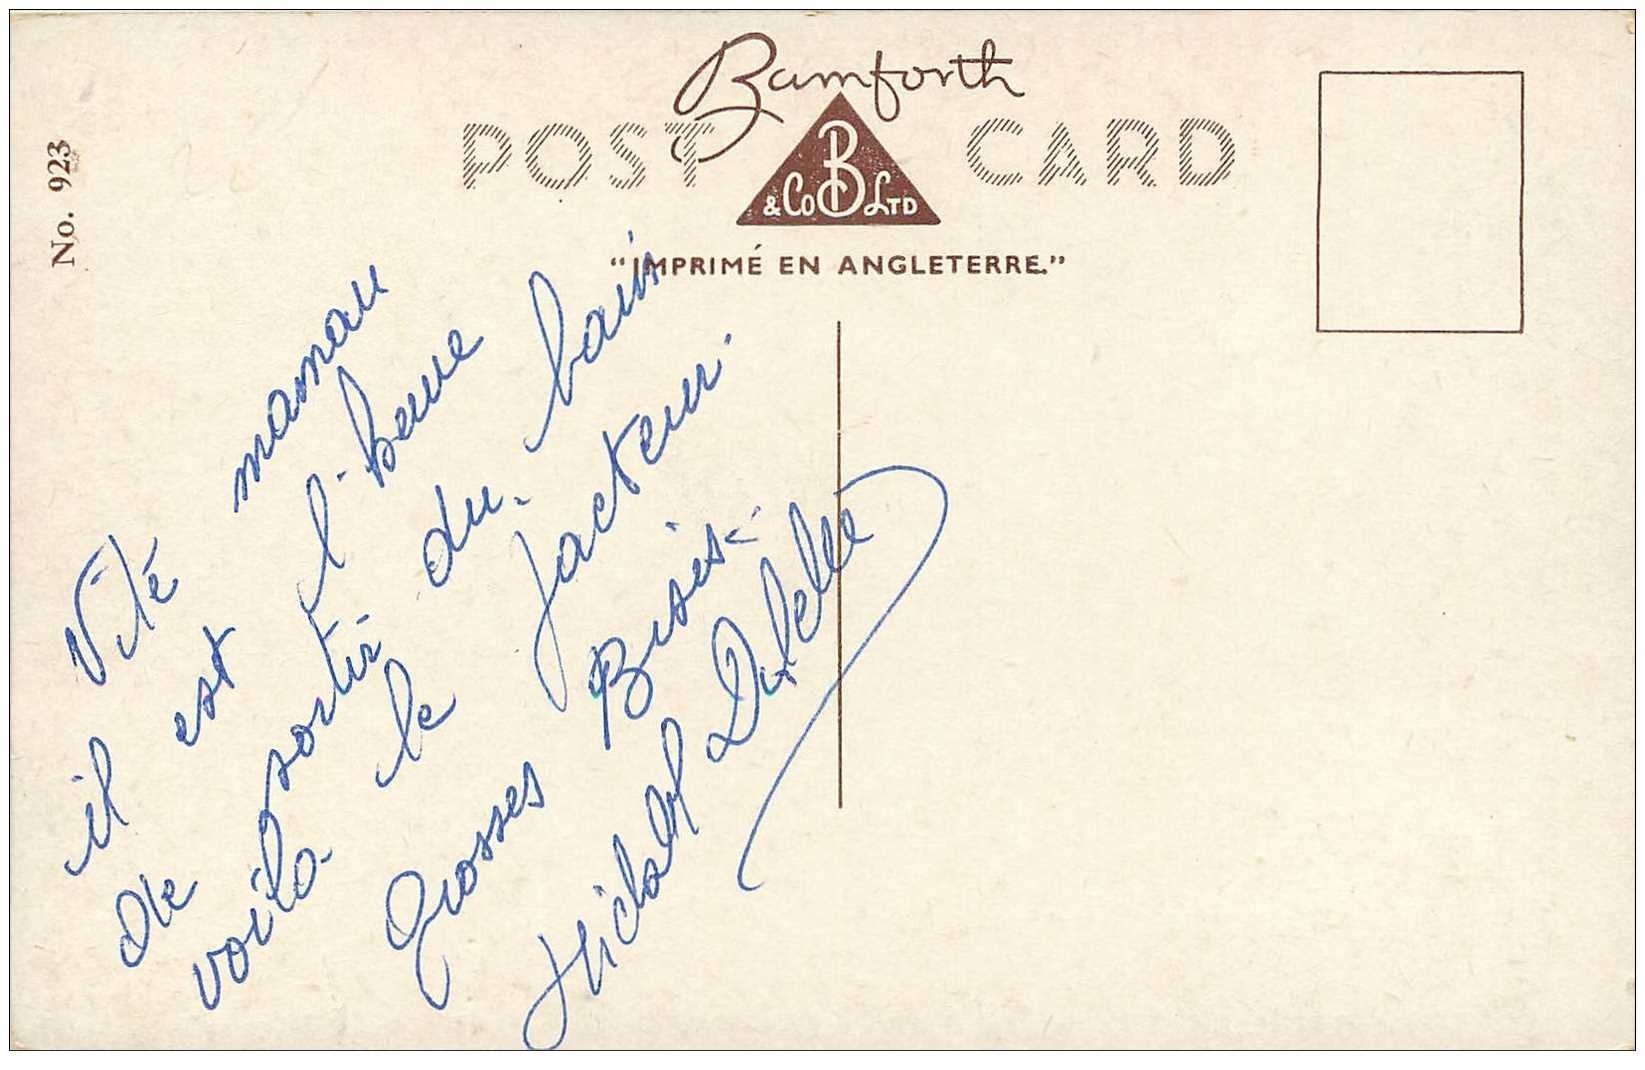 No. 923
Bamforth
POST CARD
B & Co LTD
"IMPRIMÉ EN ANGLETERRE."
Vite maman
il est l'heure
de sortir du bain
voilà le facteur.
Grosses Bises